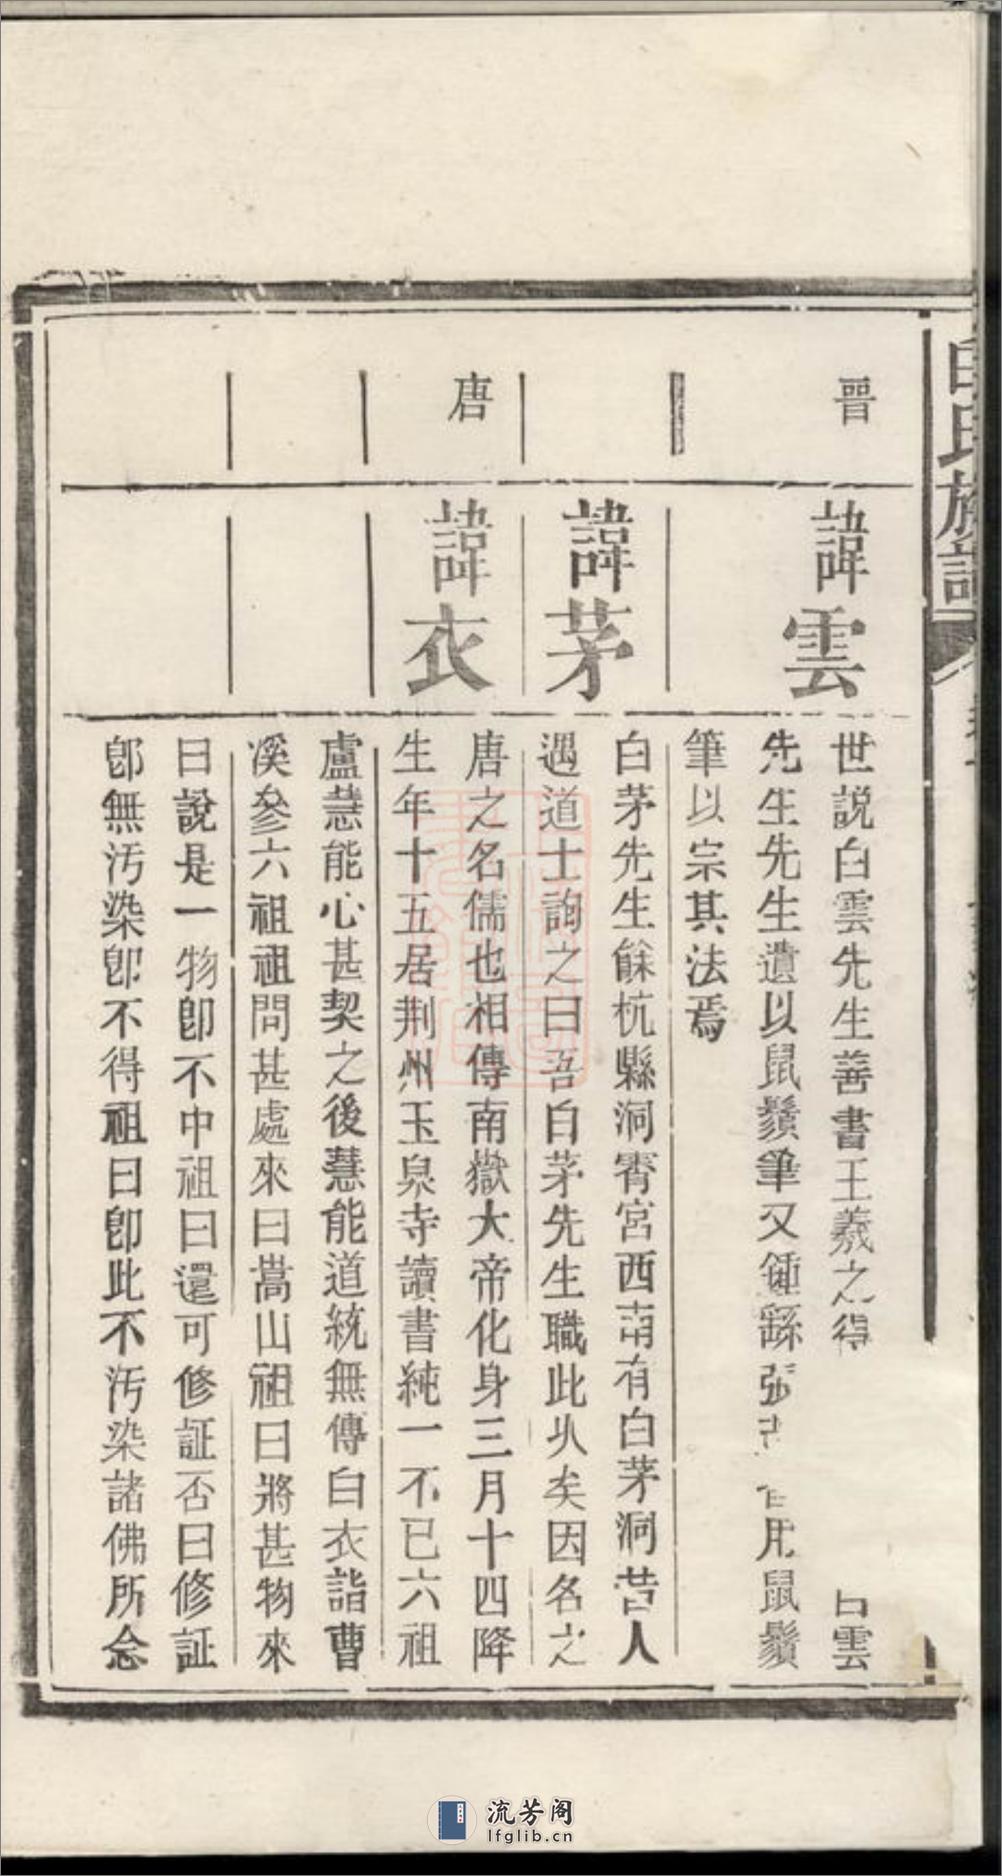 白氏族譜
晉
諱雲
世説白雲先生善書王羲之得
白雲
先生先生遺以鼠鬚筆又鍾繇張
用鼠鬚
筆以宗其法焉
諱茅
白茅先生餘杭縣洞霄宮西南有白茅洞昔人
遇道士詢之曰吾白茅先生職此乆矣因名之
唐
諱衣
唐之名儒也相傳南嶽大帝化身三月十四降
生年十五居荆州玉泉寺讀書純一不已六祖
盧慧能心甚契之後慧能道統無傳白衣詣曹
溪參六祖祖問甚處來曰嵩山祖曰將甚物來
曰說是一物卽不中祖曰還可修証否曰修証
卽無汚染卽不得祖曰卽此不汚染諸佛所念
流芳阁
lfglib.cn